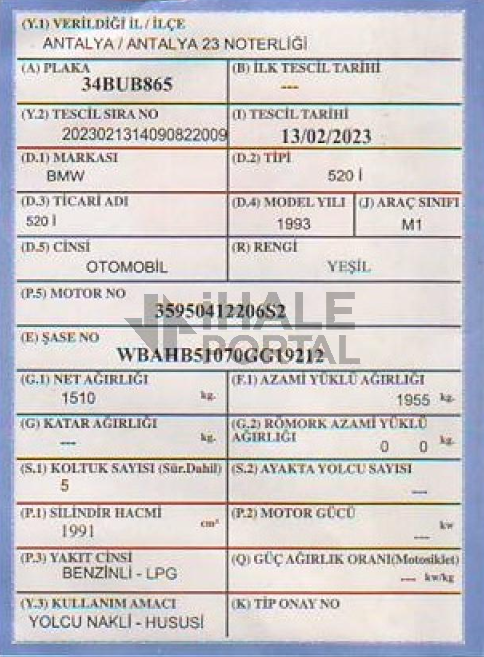 (Y.1) VERİLDİĞİ İL / İLÇE
ANTALYA / ANTALYA 23 NOTERLİĞİ
(A) PLAKA
34BUB865
(B) İLK TESCİL TARİHİ
---
(Y.2) TESCİL SIRA NO
2023021314090822009
(I) TESCİL TARİHİ
13/02/2023
(D.1) MARKASI
BMW
(D.2) TİPİ
520 İ
(D.3) TİCARİ ADI
520 İ
(D.4) MODEL YILI
1993
(J) ARAÇ SINIFI
M1
(D.5) CİNSİ
OTOMOBİL
(R) RENGİ
YEŞİL
(P.5) MOTOR NO
35950412206S2
İHALE PORTAL
(E) ŞASE NO
WBAHB51070GG19212
(G.1) NET AĞIRLIĞI
1510 kg.
(F.1) AZAMİ YÜKLÜ AĞIRLIĞI
1955 kg.
(G) KATAR AĞIRLIĞI
--- kg.
(G.2) RÖMORK AZAMİ YÜKLÜ
AĞIRLIĞI
0 0 kg.
(S.1) KOLTUK SAYISI (Sür.Dahil)
5
(S.2) AYAKTA YOLCU SAYISI
---
(P.1) SİLİNDİR HACMİ
1991 cm³
(P.2) MOTOR GÜCÜ
--- kw
(P.3) YAKIT CİNSİ
BENZİNLİ - LPG
(Q) GÜÇ AĞIRLIK ORANI(Motosiklet)
--- kw/kg
(Y.3) KULLANIM AMACI
YOLCU NAKLİ - HUSUSİ
(K) TİP ONAY NO